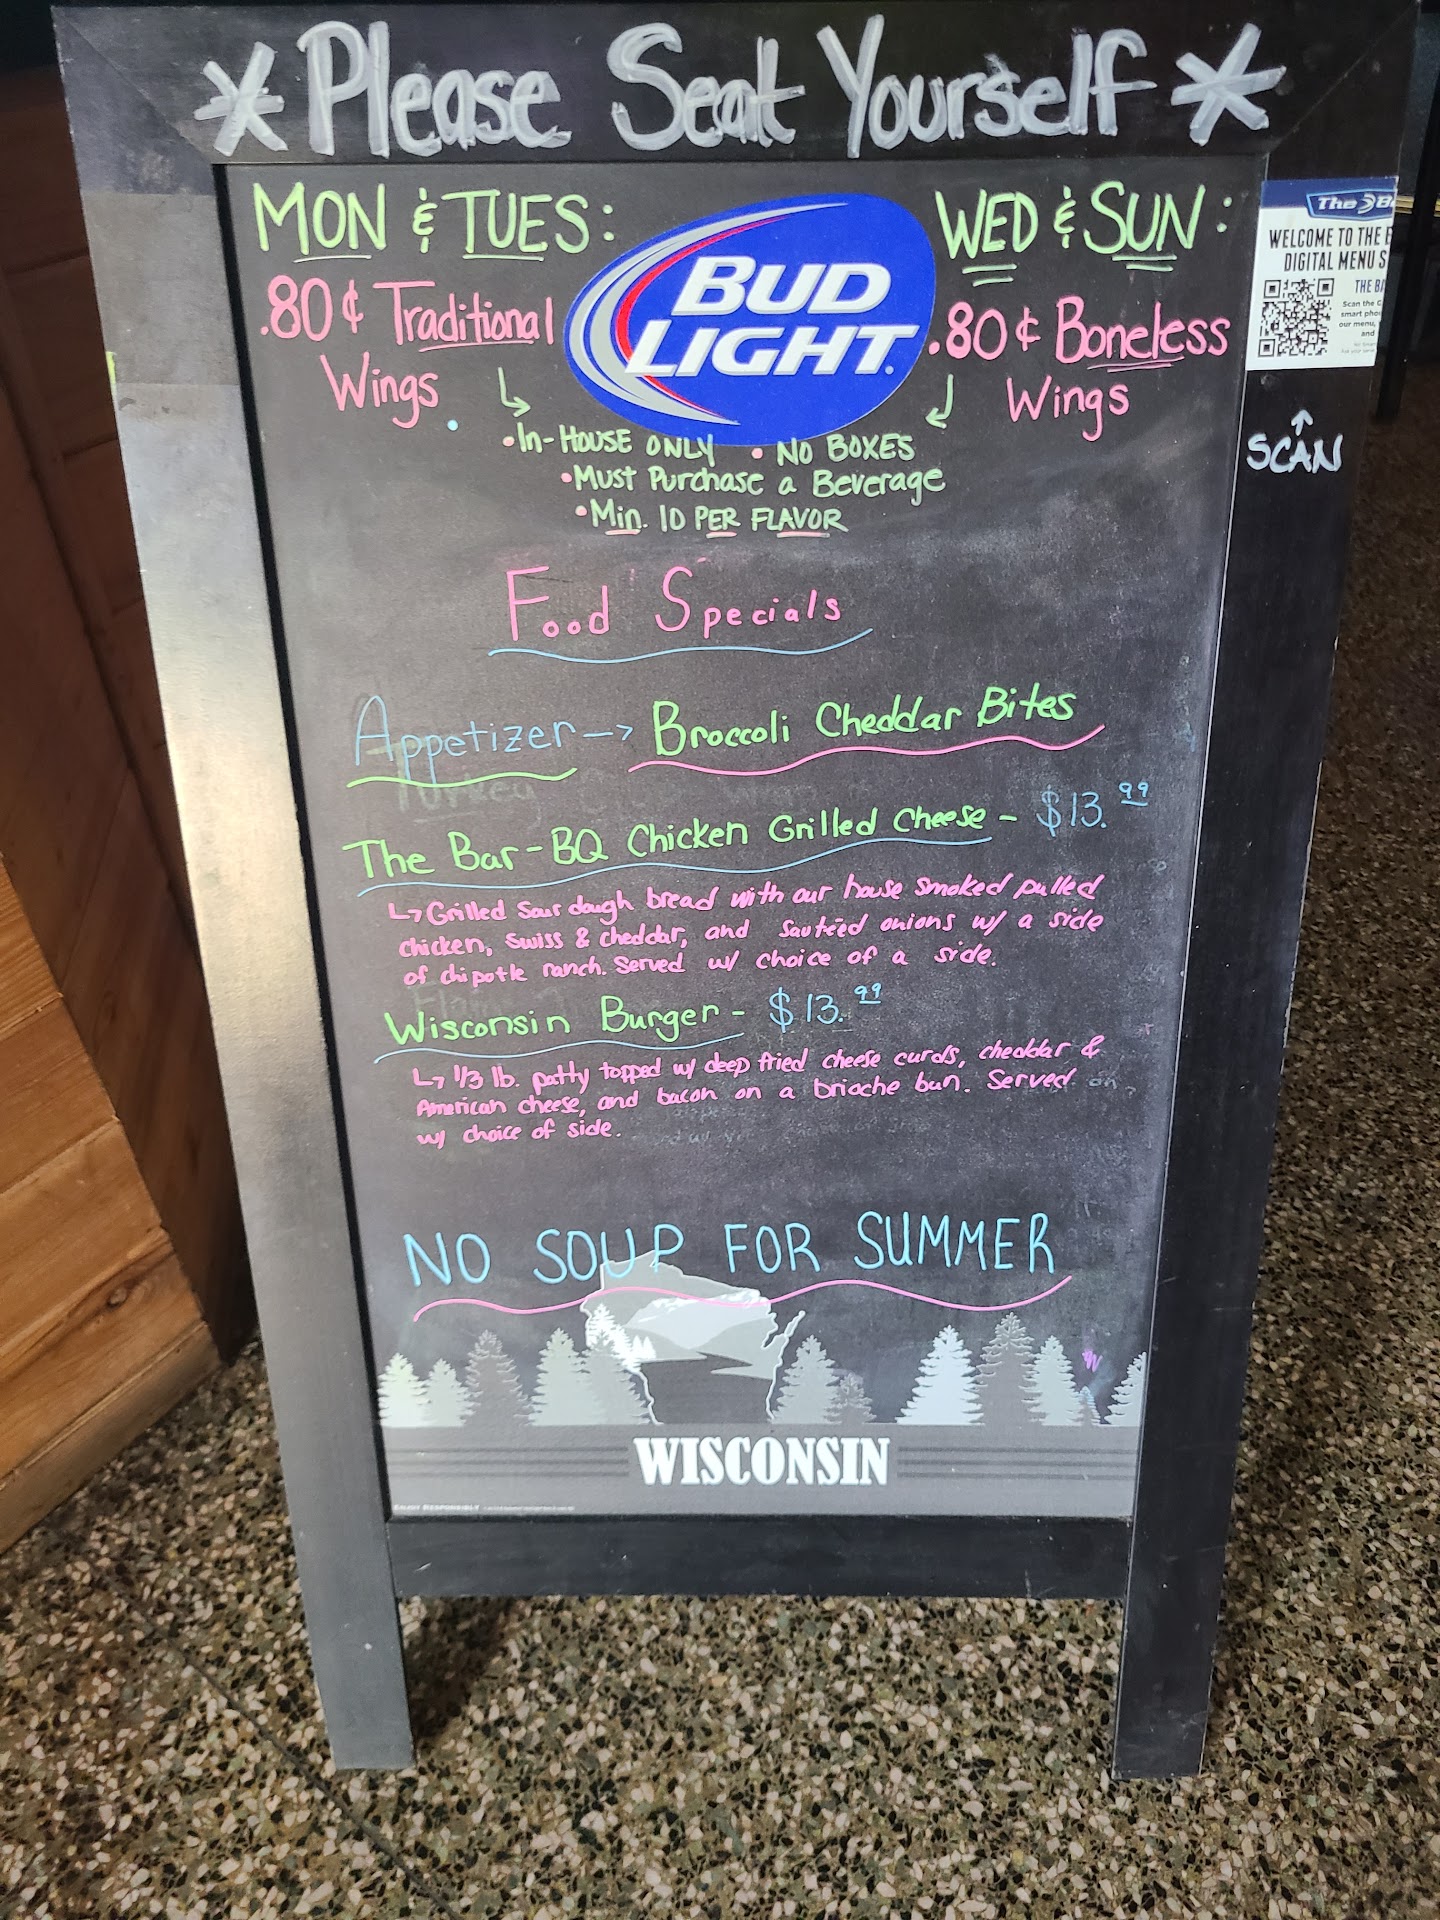 *Please Seat Yourself*
MON & TUES:
.80¢ Traditional
Wings
BUD
LIGHT.
WED & SUN:
.80¢ Boneless
Wings
•In-HOUSE ONLY • NO BOXES
•Must Purchase a Beverage
•Min. 10 PER FLAVOR
The B
WELCOME TO THE
DIGITAL MENU S
THE BA
Scan the
smart pho
our menu,
and
↑
SCAN
Food Specials
Appetizer -> Broccoli Cheddar Bites
Turkey
The Bar-BQ Chicken Grilled Cheese - $13.99
↳ Grilled Sour dough bread with our house smoked pulled
chicken, Swiss & cheddar, and sautéed onions w/ a side
of chipotle ranch. Served w/ choice of a side.
Wisconsin Burger - $13.99
↳ 1/3 lb. patty topped w/ deep fried cheese curds, cheddar &
American cheese, and bacon on a brioche bun. Served
w/ choice of side.
NO SOUP FOR SUMMER
WISCONSIN
ENJOY RESPONSIBLY